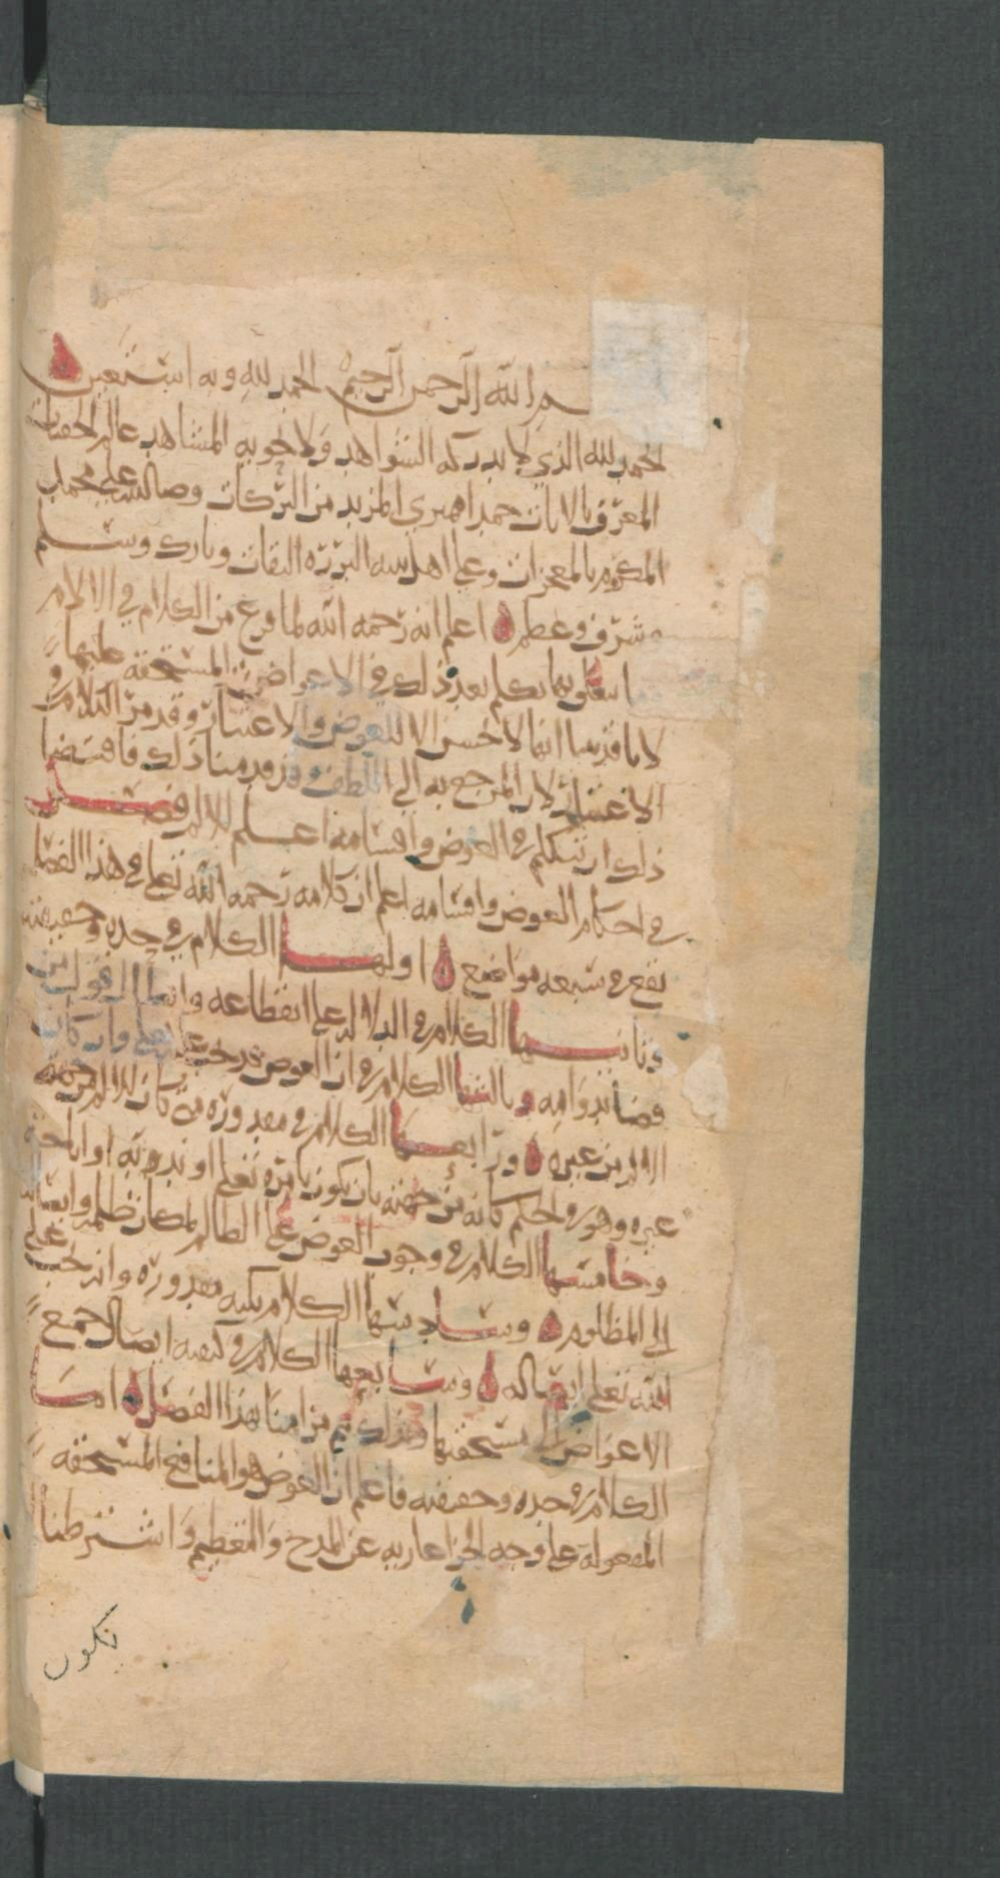 بسم الله الرحمن الرحيم الحمد لله وبه استعين
الحمد لله الذي لا تدركه الشواهد ولا تحويه المشاهد عالم الخفيات
المعرف بالايات حمدا يمتري المزيد من البركات وصلى الله على محمد
المكرم بالمعجزات وعلى اهل بيته البررة الثقات وبارك وسلم
وشرف وعظم اعلم انه رحمه الله لما فرغ من الكلام في الالام
تكلم بعد ذلك في الاعواض المستحقة عليها
لانا قد بينا انها لا تحسن الا للعوض والاعتبار وقد مر الكلام في
الاعتبار لان المرجع به الى اللطف وقد قدمنا ذلك فاقتضى
ذلك ان نتكلم في العوض واقسامه اعلم فصل
في احكام العوض واقسامه اعلم ان كلامه رحمه الله تعلى في هذا الفصل
يقع في سبعة مواضع اولها الكلام في حده وحقيقته
وثانيها الكلام في الدلالة على انقطاعه وابطال القول
بدوامه وثالثها الكلام في ان العوض قد يجب على الله تعلى وان كان
الالم من غيره ورابعها الكلام في مقدوره متى كان الالم من جهته
غيره وهو في الحكم كانه من جهته بان يكون بامره تعلى او ندبه او اباحته
وخامسها الكلام في وجوب العوض على الظالم لمكان ظلمه وايصاله
الى المظلوم وسادسها الكلام في مقدوره وانه يجب على
الله تعلى ايصاله وسابعها الكلام في كيفية ايصال جميع
الاعواض الى مستحقها هذا الفصل اما
الكلام في حده وحقيقته فاعلم ان العوض هو المنافع المستحقة
المفعولة على وجه الجزا عارية عن المدح والتعظيم واشترطنا
تكون